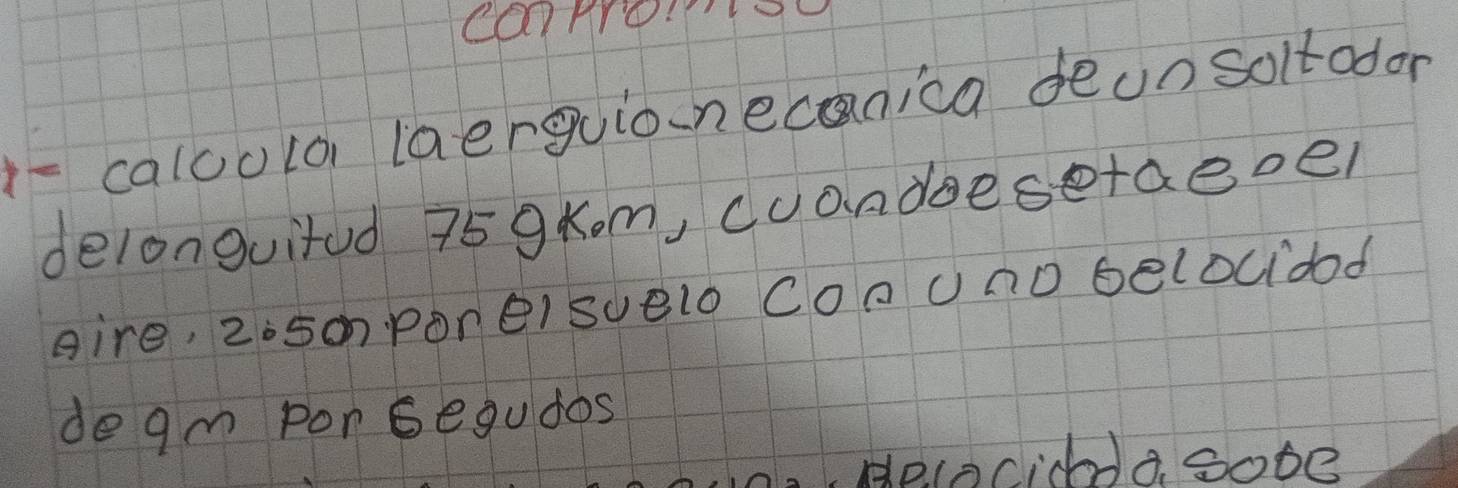 conpromiso
1- calcula laerguio-necanica deunsaltador
delonguitud 75gkom, cuandoesetaeoel
aire, 2.5m porelsuelo con uno belocidad
de 9m por segudos
belocidad a sobe